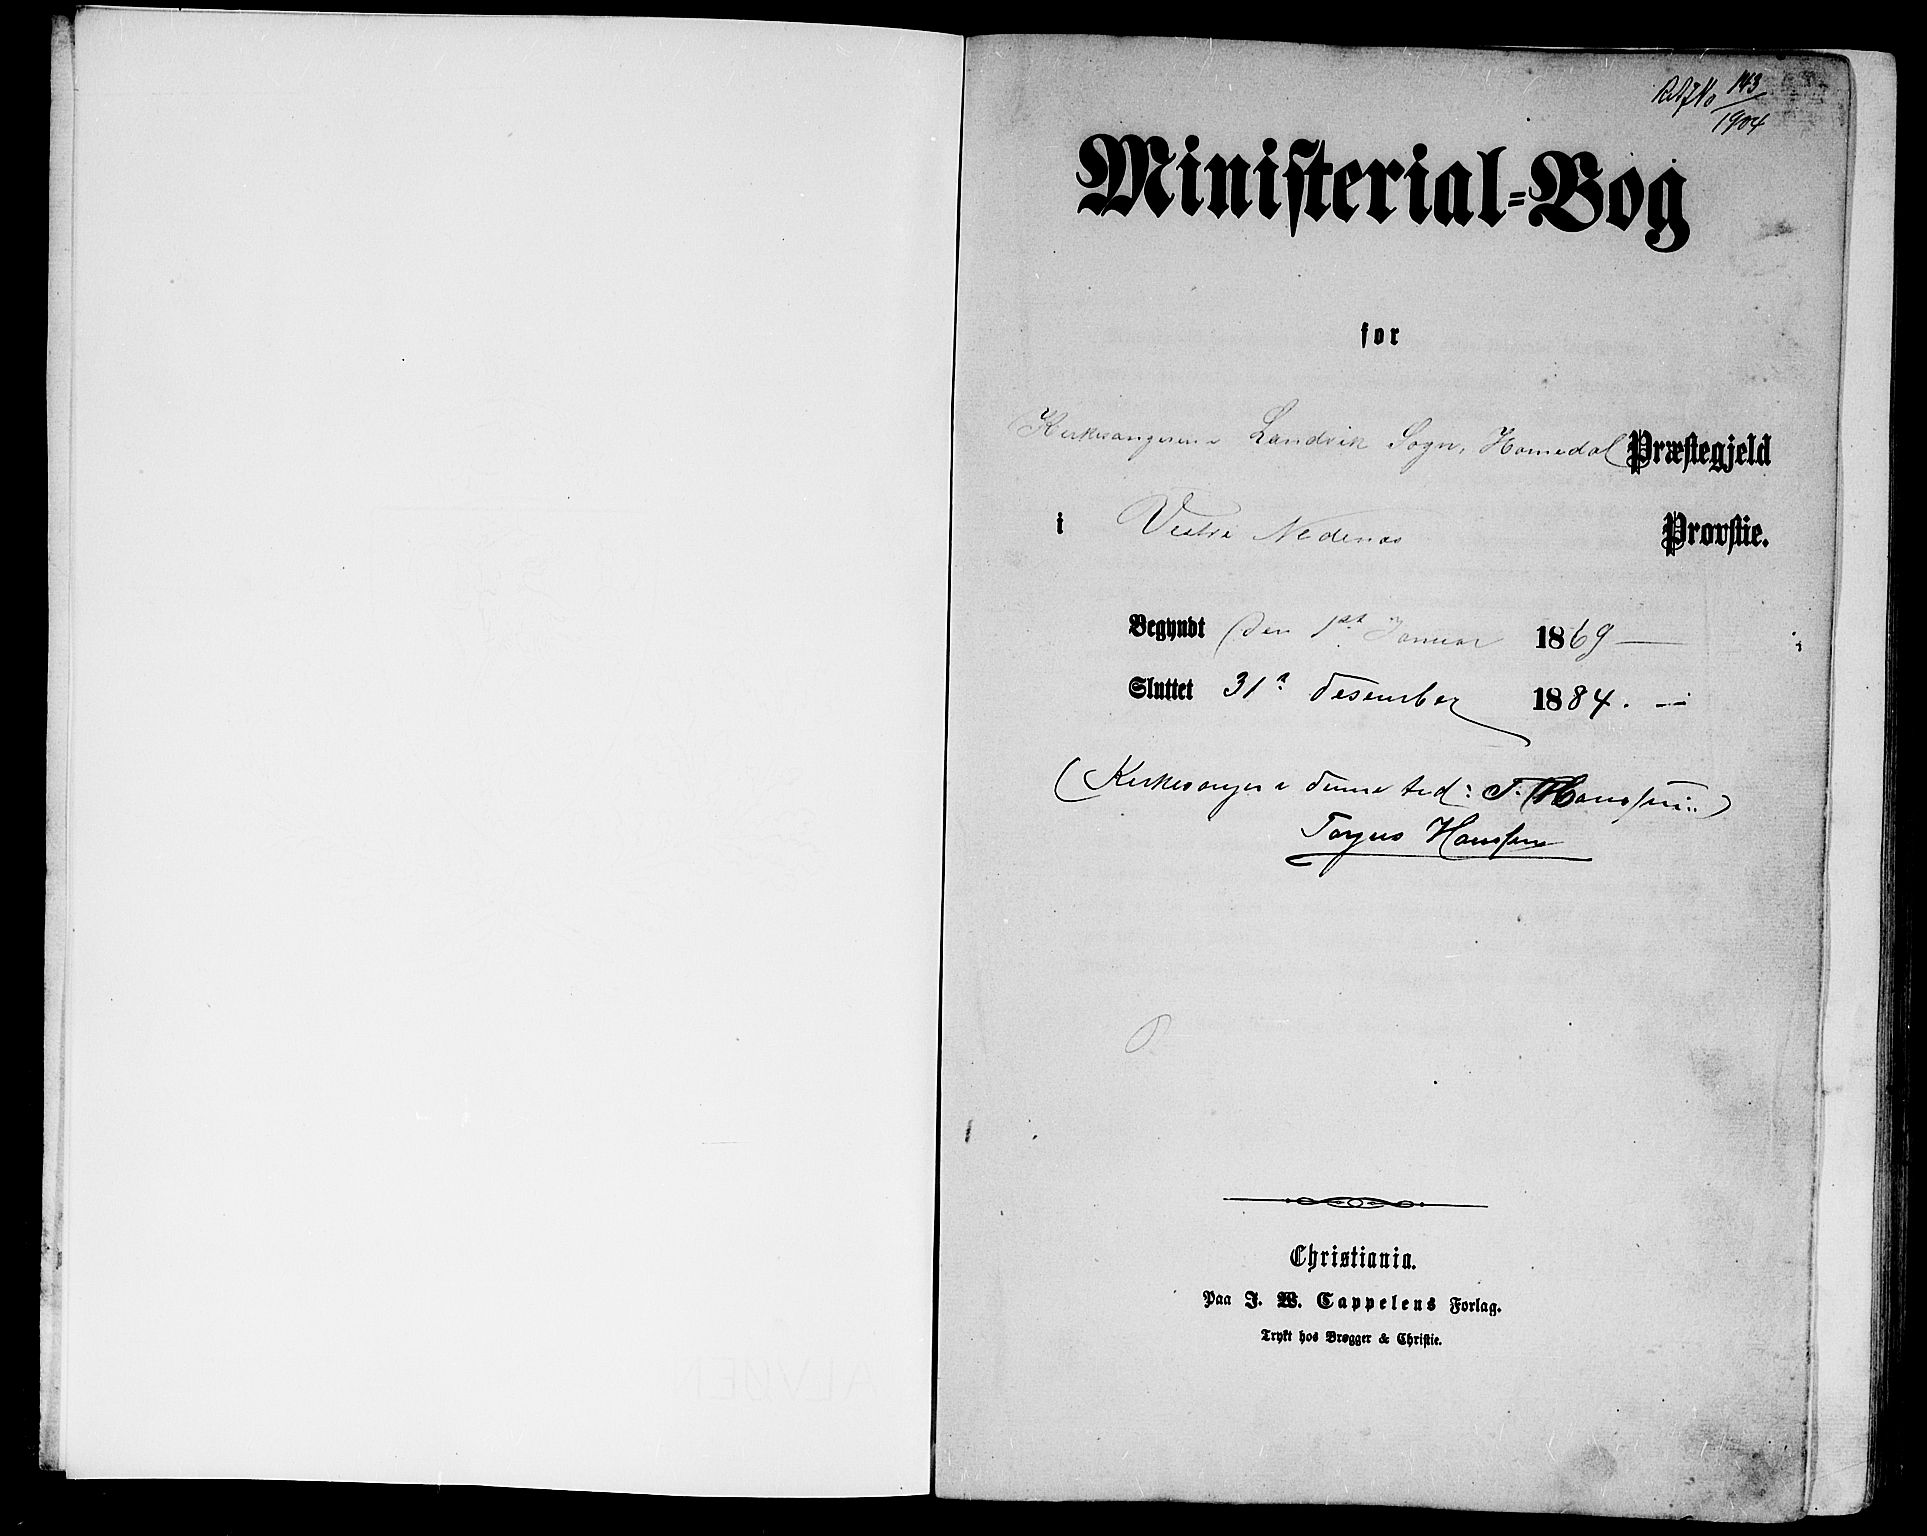 143
1904
Ministerial-Bog
for
Kirkesangeren i Landvik Sogn, Homedal Præstegjeld
i Vestre Nedenæs Provstie.
Begyndt den 1st Januar 1869
Sluttet 31. desember 1884.
(Kirkesanger i denne tid: T. Hanssen.)
Torjus Hanssen
Christiania.
Paa J. W. Cappelens Forlag.
Trykt hos Brøgger & Christie.
ALVØEN